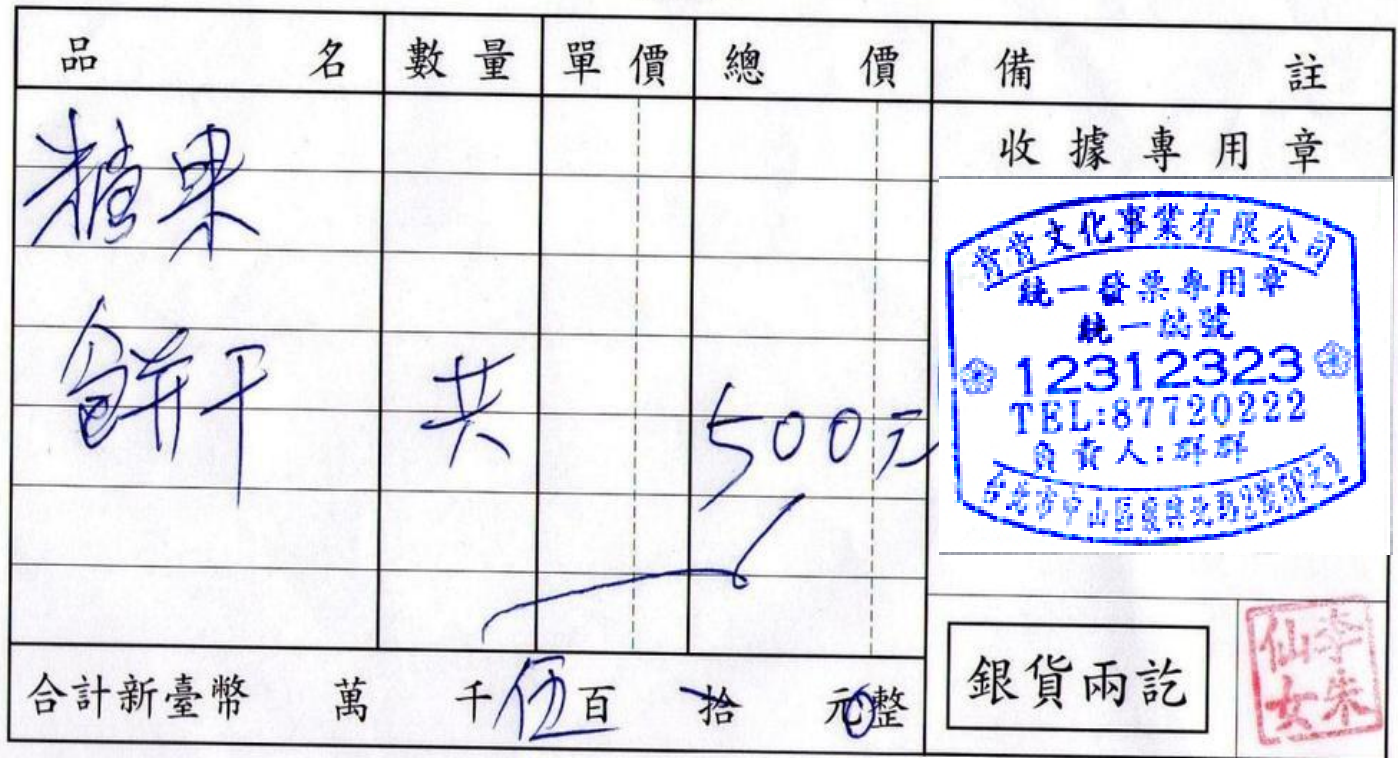 品名 數量 單價 總價 備註
收據專用章
糖果
餅干 共 500元
肯肯文化事業有限公司
統一發票專用章
統一編號
12312323
TEL:87720222
負責人:群群
台北市中山區復興北路2號5F之2
合計新臺幣 萬 千伍百 拾 元整
銀貨兩訖
李朱仙女